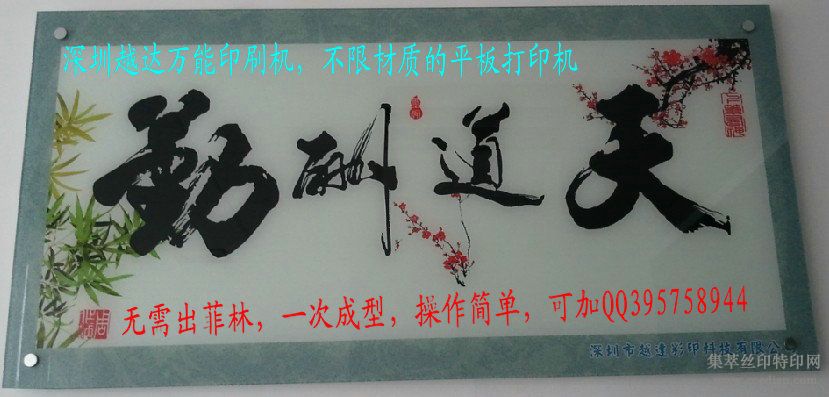 深圳越达万能印刷机，不限材质的平板打印机
天道酬勤
无需出菲林，一次成型，操作简单，可加QQ395758944
深圳市越达彩印科技有限公
集萃丝印特印网